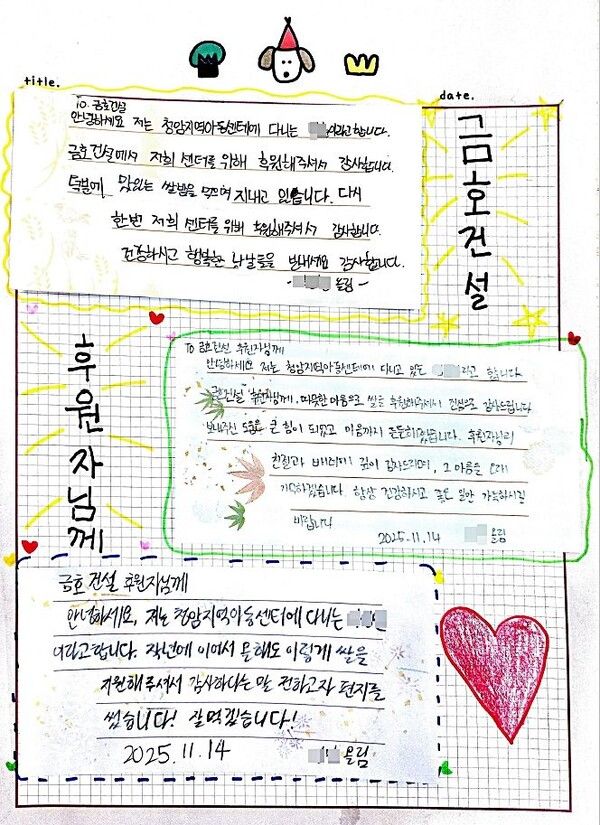 title.
date.
금호건설
To. 금호건설
안녕하세요 저는 청암지역아동센터에 다니는 이라고 합니다.
금호건설에서 저희 센터를 위해 후원해주셔서 감사합니다.
덕분에 맛있는 쌀밥을 먹으며 지내고 있습니다. 다시
한번 저희 센터를 위해 후원해주셔서 감사합니다.
건강하시고 행복한 나날들을 보내세요 감사합니다.
- 올림 -
후원자님께
To 금호건설 후원자님께
안녕하세요 저는 청암지역아동센터에 다니고 있는 라고 합니다
금호건설 후원자님께, 따뜻한 마음으로 쌀을 후원해주셔서 진심으로 감사드립니다
보내주신 도움은 큰 힘이 되었고 마음까지 든든해졌습니다. 후원자님의
친절과 배려에 깊이 감사드리며, 그 마음을 오래
기억하겠습니다. 항상 건강하시고 좋은 일만 가득하시길
바랍니다
2025.11.14 올림
금호건설 후원자님께
안녕하세요, 저는 청암지역아동센터에 다니는
이라고합니다. 작년에 이어서 올해도 이렇게 쌀을
지원해주셔서 감사하다는 말 전하고자 편지를
썼습니다! 잘먹겠습니다!
2025.11.14 올림